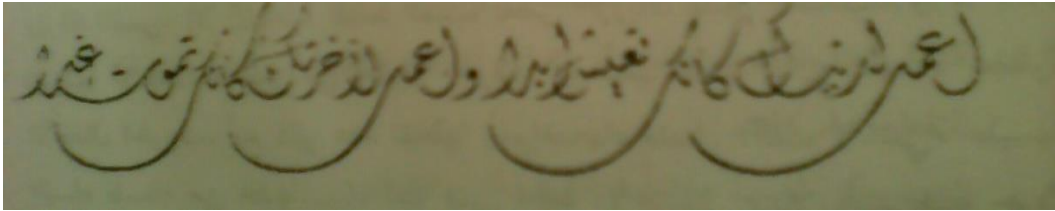 اعمل لدنياك كأنك تعيش أبدا واعمل لآخرتك كأنك تموت غدا